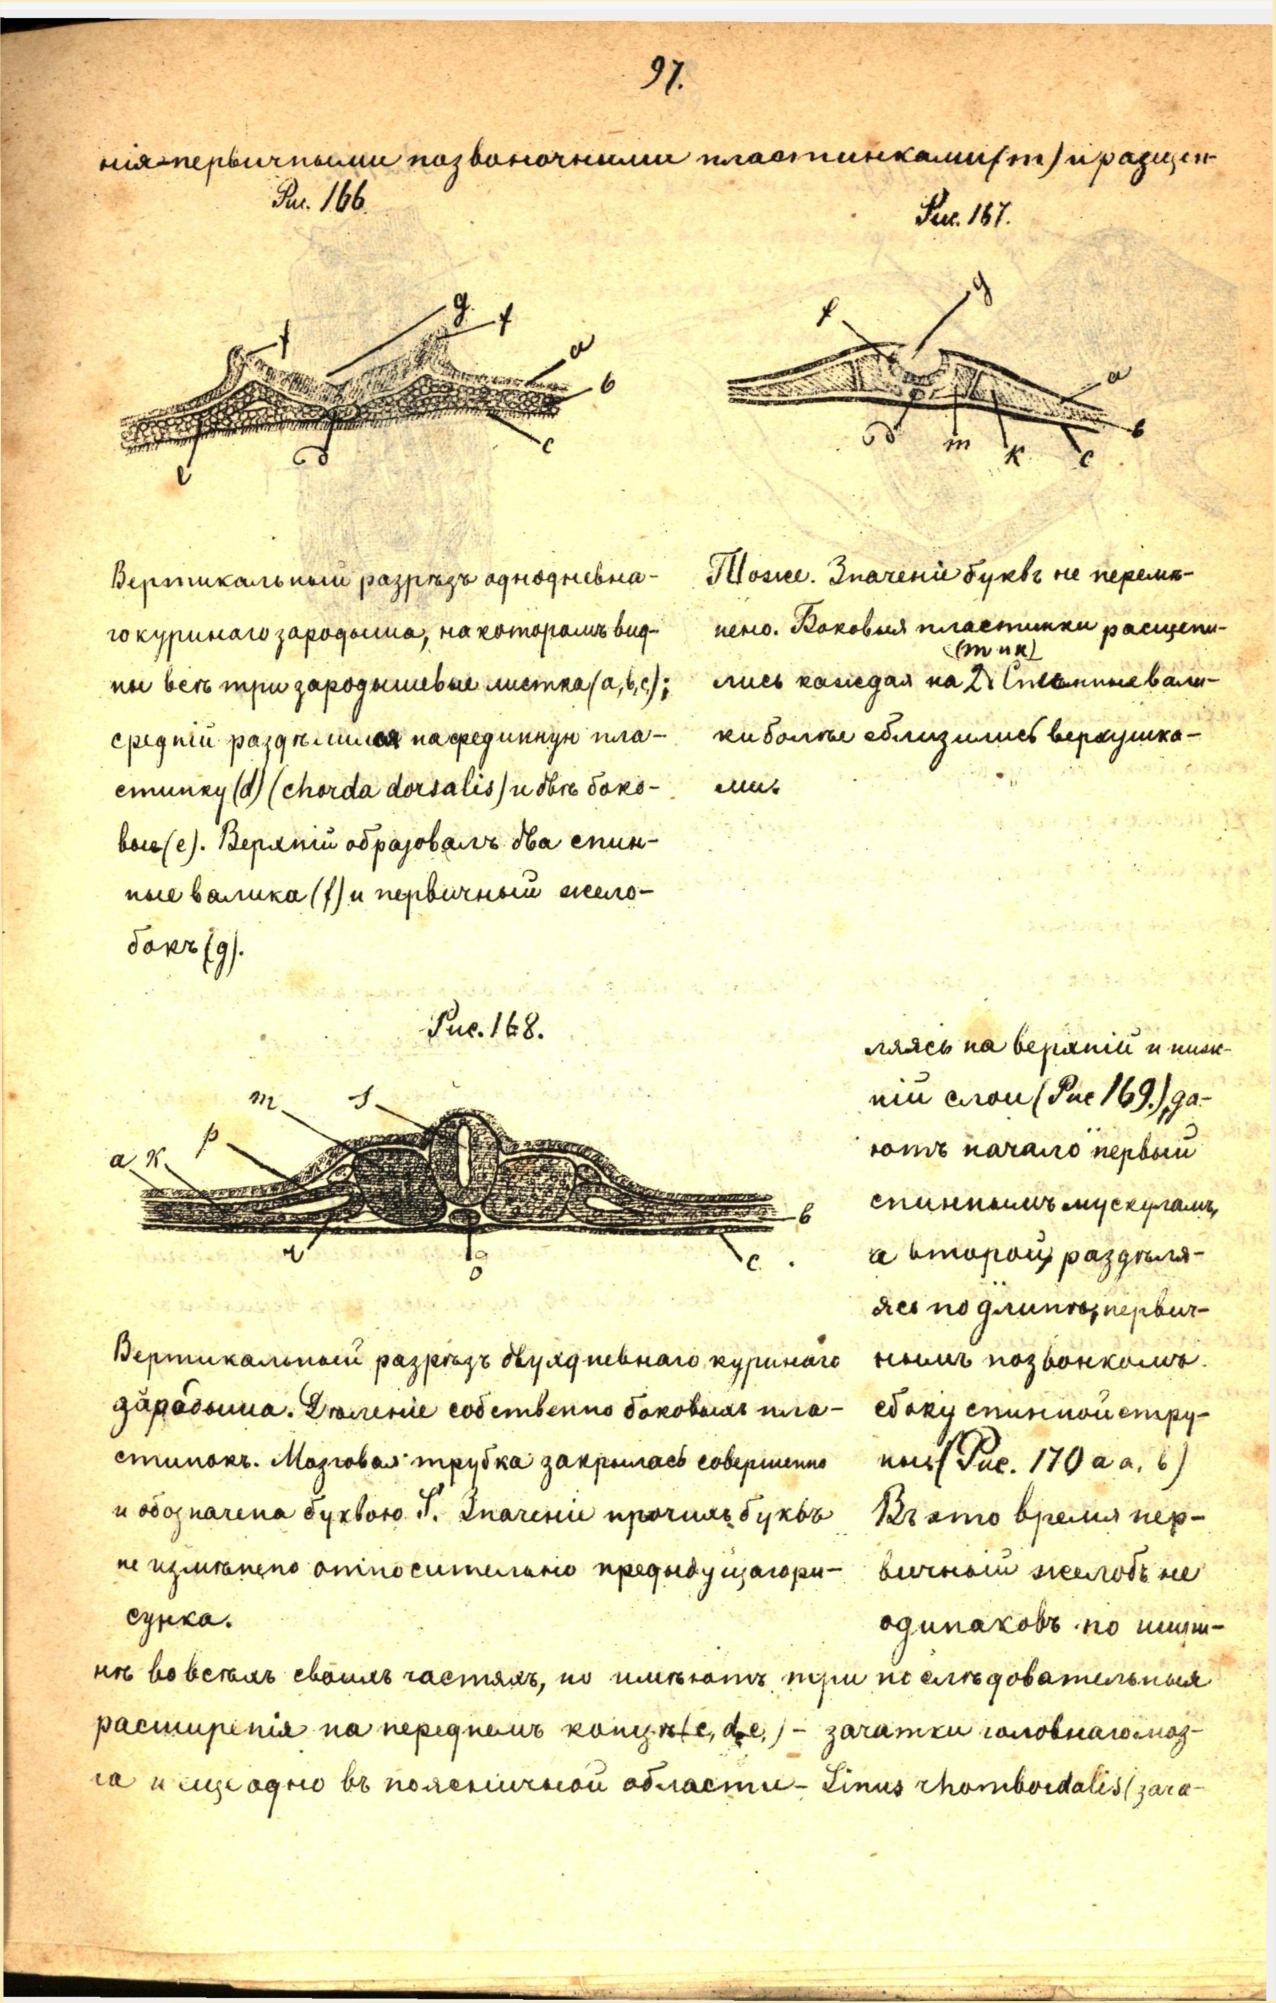 97.
нія-первичными позвоночными пластинками (m) и расщеп-
Рис. 166.
Рис. 167.
f
g
f
a
b
c
d
e
f
g
a
b
c
k
m
d
Вертикальный разрѣзъ однодневна-
го куринаго зародыша, на которомъ вид-
ны всѣ три зародышевые листка (a, b, c);
средній раздѣлился на срединную пла-
стинку (d) (chorda dorsalis) и двѣ боко-
выя (e). Верхній образовалъ два спин-
ные валика (f) и первичный жело-
бокъ (g).
Тоже. Значеніе буквъ не перемѣ-
нено. Боковыя пластинки расщепи-
(m и k)
лись каждая на 2. Спинные вали-
ки болѣе сблизились верхушка-
ми.
Рис. 168.
m
s
p
k
a
b
c
d
r
Вертикальный разрѣзъ двухдневнаго куринаго
зародыша. Дѣленіе собственно боковыхъ пла-
стинокъ. Мозговая трубка закрылась совершенно
и обозначена буквою S. Значеніе прочихъ буквъ
не измѣнено относительно предыдущаго ри-
сунка.
ляясь на верхній и ниж-
ній слои (Рис 169.), да-
ютъ начало первый
спиннымъ мускуламъ,
а второй, раздѣля-
ясь по длинѣ, первич-
нымъ позвонкамъ
сбоку спинной стру-
ны (Рис. 170 a a, b)
Въ это время пер-
вичный желобъ не
одинаковъ по шири-
нѣ во всѣхъ своихъ частяхъ, но имѣютъ три послѣдовательныя
расширенія на переднемъ концѣ (c, d, e.) – зачатки головнаго моз-
га и еще одно въ поясничной области – Sinus rhomboidalis (зача-